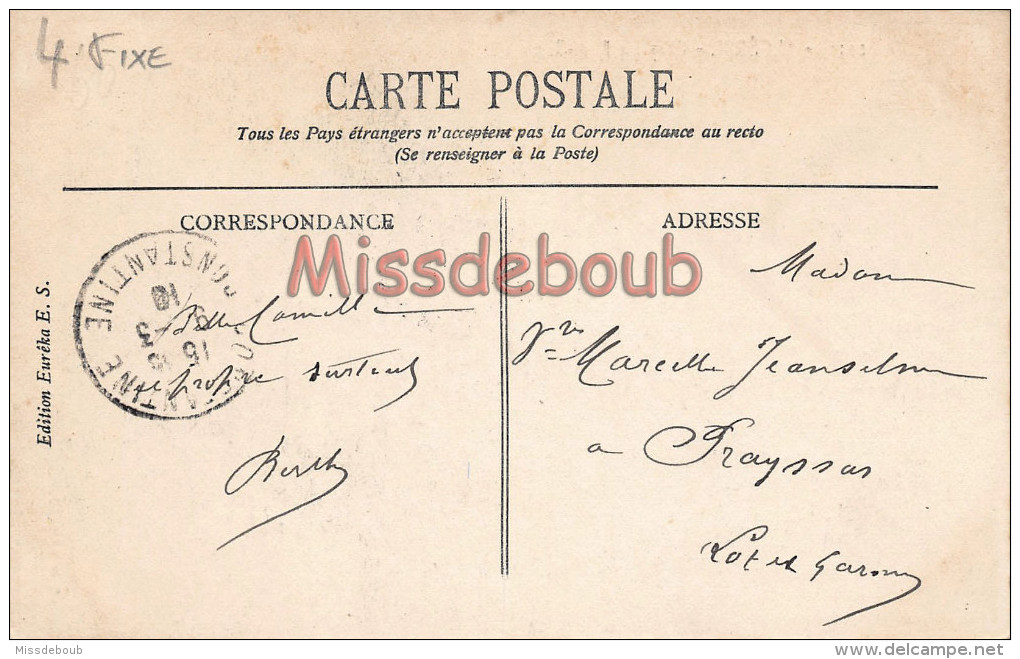 4 FIXE
CARTE POSTALE
Tous les Pays étrangers n'acceptent pas la Correspondance au recto
(Se renseigner à la Poste)
CORRESPONDANCE
ADRESSE
Missdeboub
Edition Eurêka E. S.
CONSTANTINE
CONSTANTINE
Belle Camille
et propre surtout
Berthe
Madame
Vve Marcelle Jeanselme
a Frayssas
Lot et Garonne
Missdeboub
delcampe.net